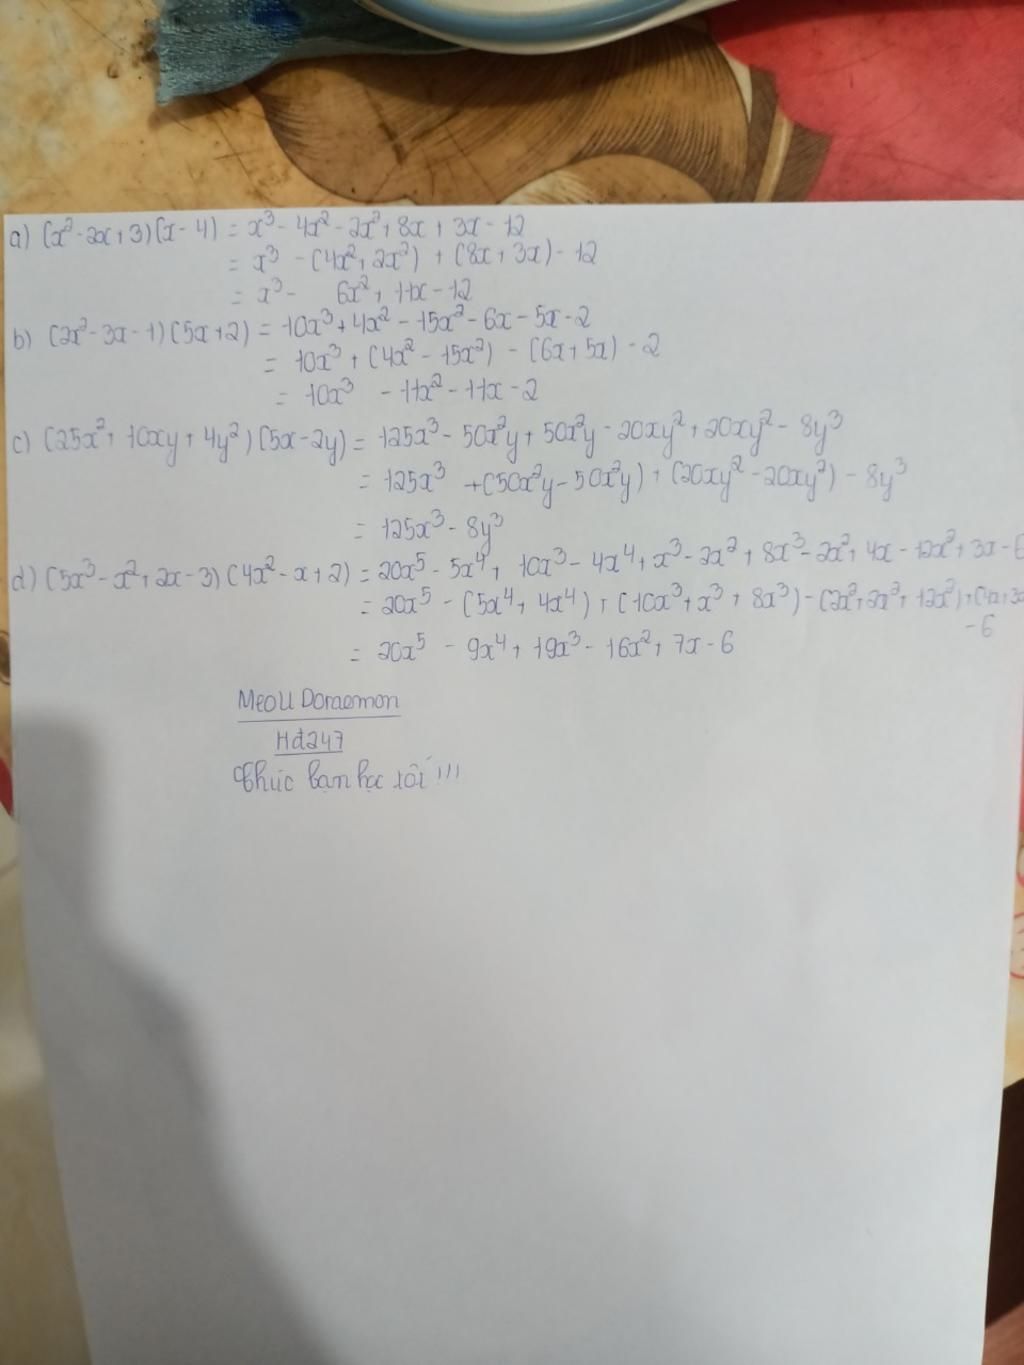 a) (x² - 2x + 3)(x - 4) = x³ - 4x² - 2x² + 8x + 3x - 12
= x³ - (4x² + 2x²) + (8x + 3x) - 12
= x³ - 6x² + 11x - 12
b) (2x² - 3x - 1)(5x + 2) = 10x³ + 4x² - 15x² - 6x - 5x - 2
= 10x³ + (4x² - 15x²) - (6x + 5x) - 2
= 10x³ - 11x² - 11x - 2
c) (25x² + 10xy + 4y²)(5x - 2y) = 125x³ - 50x²y + 50x²y - 20xy² + 20xy² - 8y³
= 125x³ + (50x²y - 50x²y) + (20xy² - 20xy²) - 8y³
= 125x³ - 8y³
d) (5x³ - x² + 2x - 3)(4x² - x + 2) = 20x⁵ - 5x⁴ + 10x³ - 4x⁴ + x³ - 2x² + 8x³ - 2x² + 4x - 12x² + 3x - 6
= 20x⁵ - (5x⁴ + 4x⁴) + (10x³ + x³ + 8x³) - (2x² + 2x² + 12x²) + (4x + 3x
- 6
= 20x⁵ - 9x⁴ + 19x³ - 16x² + 7x - 6
MeoU Doraemon
Hđ247
Chúc bạn học tốt !!!